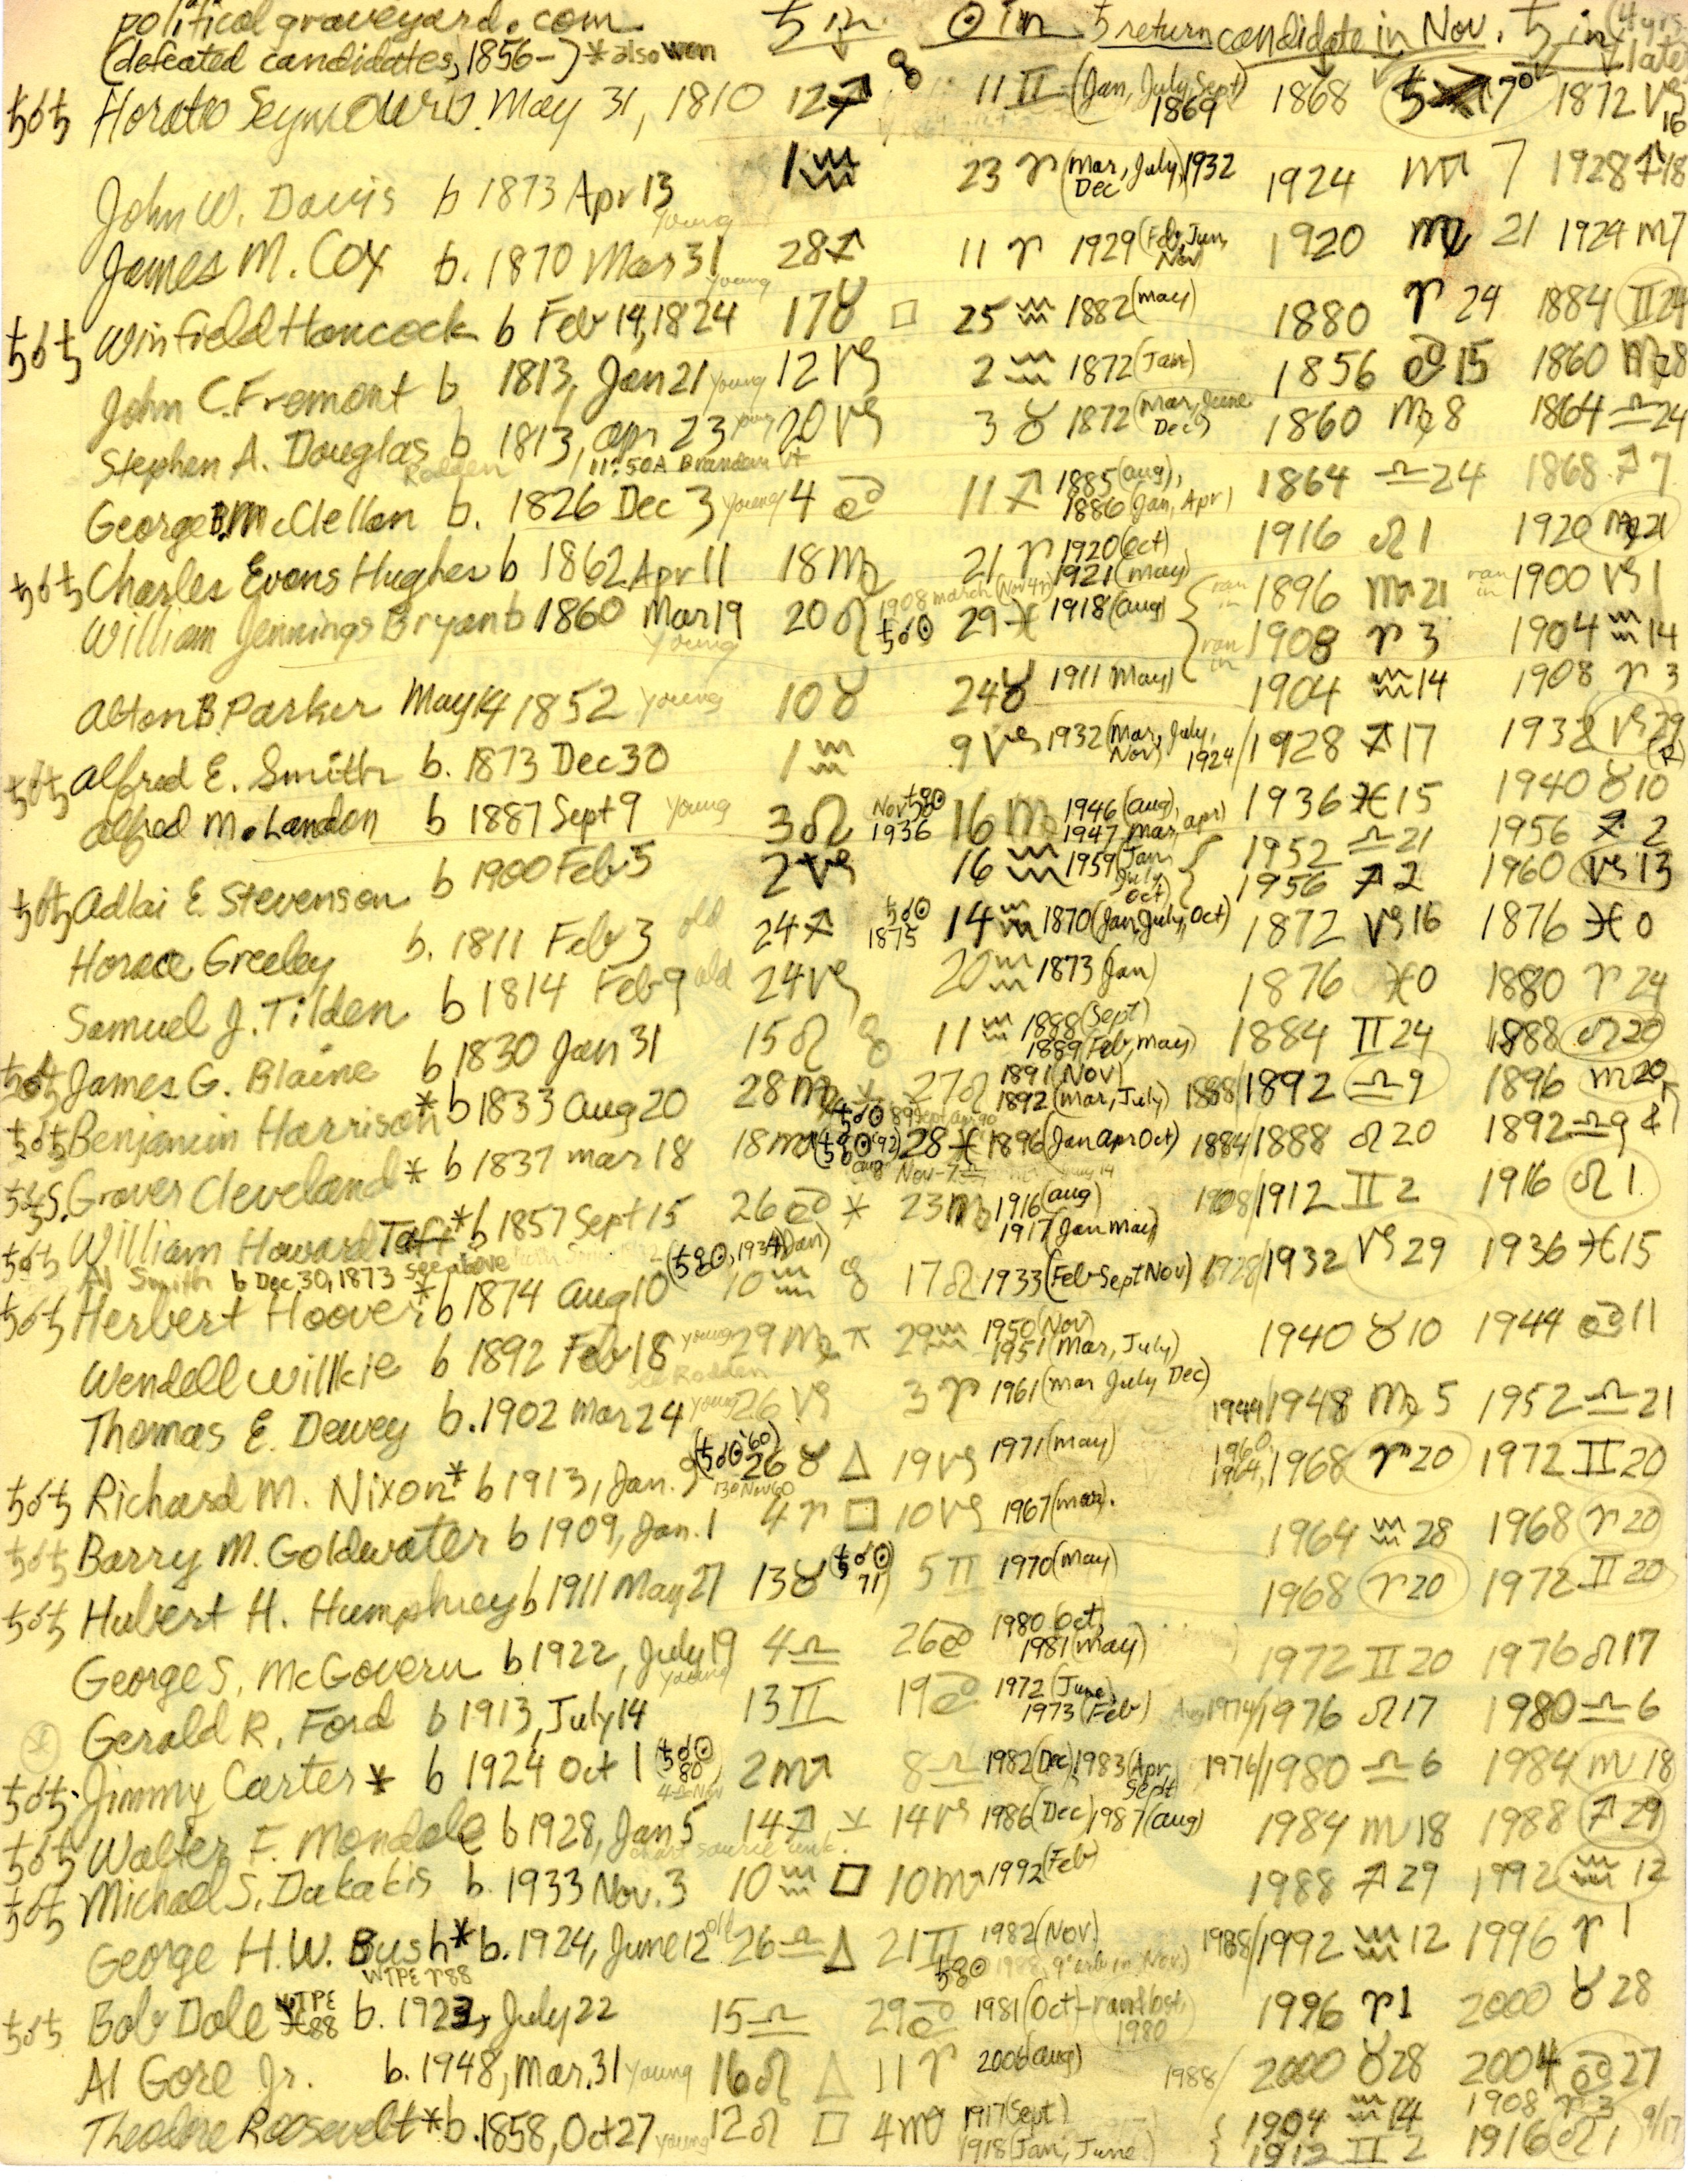 politicalgraveyard.com ♄ in ☉ in ♄ return candidate in Nov. ♄ in (4 yrs later
(defeated candidates, 1856-) * also won
♄☌♄ Horatio Seymour May 31, 1810 12♐ ☍ 11 ♊ (Jan, July, Sept) 1869 1868 ♄ ♐ 7° 1872 ♑ 16
John W. Davis b 1873 Apr 13 1♒ 23 ♈ (Mar, July, Dec) 1932 1924 ♏ 7 1928 ♐ 18
young
James M. Cox b. 1870 Mar 31 28♐ 11 ♈ 1929 (Feb, Jun, Nov) 1920 ♍ 21 1924 ♏ 7
young
♄☌♄ Winfield Hancock b Feb 14, 1824 17♉ □ 25 ♒ 1882 (May) 1880 ♈ 24 1884 ♊ 24
John C. Fremont b 1813, Jan 21 young 12 ♑ 2 ♒ 1872 (Jan) 1856 ♋ 15 1860 ♍ 8
Stephen A. Douglas b 1813, Apr 23 young 20 ♑ 3 ♉ 1872 (Mar, June, Dec) 1860 ♍ 8 1864 ♎ 24
Rodden 11:50A Brandon Vt
George B. McClellan b. 1826 Dec 3 young 4 ♋ 11 ♐ 1885 (Aug), 1886 (Jan, Apr) 1864 ♎ 24 1868 ♐ 7
♄☌♄ Charles Evans Hughes b 1862 Apr 11 18 ♍ 21 ♈ 1920 (Oct) 1921 (May) 1916 ♌ 1 1920 ♍ 21
William Jennings Bryan b 1860 Mar 19 20 ♌ 1908 March (Nov 4°) ♄☌☉ 29 ♓ 1918 (Aug) { ran in 1896 ♏ 21 ran in 1900 ♑ 1
young ran in 1908 ♈ 3 1904 ♒ 14
Alton B. Parker May 14, 1852 young 10 ♉ 24♉ 1911 (May) 1904 ♒ 14 1908 ♈ 3
♄☌♄ Alfred E. Smith b. 1873 Dec 30 1 ♒ 9 ♑ 1932 (Mar, July, Nov) 1924/1928 ♐ 17 1932 ♑ 29 (R)
Alfred M. Landon b 1887 Sept 9 young 3♌ Nov ♄☍☉ 1936 16 ♍ 1946 (Aug), 1947 (Mar, Apr) 1936 ♓ 15 1940 ♉ 10
♄☌♄ Adlai E. Stevenson b 1900 Feb 5 2 ♑ 16 ♒ 1959 (Jan, July, Oct) { 1952 ♎ 21 1956 ♐ 2
1956 ♐ 2 1960 ♑ 13
Horace Greeley b. 1811 Feb 3 old 24♐ ♄☌☉ 1875 14 ♒ 1870 (Jan, July, Oct) 1872 ♑ 16 1876 ♓ 0
Samuel J. Tilden b 1814 Feb 9 old 24♑ 20 ♒ 1873 (Jan) 1876 ♓ 0 1880 ♈ 24
♄☌♄ James G. Blaine b 1830 Jan 31 15 ♌ ☍ 11 ♒ 1888 (Sept) 1889 (Feb, May) 1884 ♊ 24 1888 ♌ 20
♄☌♄ Benjamin Harrison * b 1833 Aug 20 28 ♍ ⚹ 27 ♌ 1891 (Nov) 1892 (Mar, July) 1888/1892 ♎ 9 1896 ♏ 20
♄☌♄ Grover Cleveland * b 1837 Mar 18 18 ♏ (♄☍☉ '92) 28 ♓ 1896 (Jan Apr Oct) 1884/1888 ♌ 20 1892 ♎ 9 & ↑
♄☌♄ William Howard Taft * b 1857 Sept 15 26 ♋ ⚹ 23 ♍ 1916 (Aug) 1917 (Jan May) 1908/1912 ♊ 2 1916 ♌ 1
Al Smith b Dec. 30, 1873 see above
♄☌♄ Herbert Hoover * b 1874 Aug 10 (♄☍☉, 1934 Jan) 10 ♒ ☍ 17 ♌ 1933 (Feb Sept Nov) 1928/1932 ♑ 29 1936 ♓ 15
Wendell Willkie b 1892 Feb 18 young 29 ♍ ⚻ 29 ♒ 1950 (Nov) 1951 (Mar, July) 1940 ♉ 10 1944 ♋ 11
see Rodden
Thomas E. Dewey b. 1902 Mar 24 young 26 ♑ 3 ♈ 1961 (Mar July Dec) 1944/1948 ♍ 5 1952 ♎ 21
♄☌♄ Richard M. Nixon * b 1913, Jan. 9 (♄☌☉ '60) 26 ♉ △ 19 ♑ 1971 (May) 1960, 1964, 1968 ♈ 20 1972 ♊ 20
13° Nov 60
♄☌♄ Barry M. Goldwater b 1909, Jan. 1 4 ♈ □ 10 ♑ 1967 (Mar). 1964 ♒ 28 1968 ♈ 20
♄☌♄ Hubert H. Humphrey b 1911 May 27 13♉ (♄☌☉ 71) 5 ♊ 1970 (May) 1968 ♈ 20 1972 ♊ 20
George S. McGovern b 1922, July 19 4 ♎ 26♋ 1980 (Oct, 1981 (May) 1972 ♊ 20 1976 ♌ 17
young
Gerald R. Ford b 1913, July 14 13 ♊ 19♋ 1972 (June) 1973 (Feb) Aug 1974/1976 ♌ 17 1980 ♎ 6
♄☌♄ Jimmy Carter * b 1924 Oct 1 (♄☌☉ 80) 2 ♏ 8 ♎ 1982 (Dec) 1983 (Apr, Sept) 1976/1980 ♎ 6 1984 ♏ 18
♄☌♄ Walter F. Mondale b 1928, Jan 5 14 ♐ ⚺ 14 ♑ 1986 (Dec) 1987 (Aug) 1984 ♏ 18 1988 ♐ 29
chart source unk.
♄☌♄ Michael S. Dukakis b. 1933 Nov. 3 10 ♒ □ 10 ♏ 1992 (Feb) 1988 ♐ 29 1992 ♒ 12
George H.W. Bush * b. 1924, June 12 old 26 ♎ △ 21 ♊ 1982 (Nov) 1988/1992 ♒ 12 1996 ♈ 1
WTPE ♈ 88 ♄☍☉ 1988, 9° orb in Nov)
♄☌♄ Bob Dole WTPE ♓ 88 b. 1923, July 22 15 ♎ 29♋ 1981 (Oct - ran & lost 1980) 1996 ♈ 1 2000 ♉ 28
Al Gore Jr. b. 1948, Mar. 31 young 16 ♌ △ 11 ♈ 2006 (Aug) 1988/ 2000 ♉ 28 2004 ♋ 27
Theodore Roosevelt * b. 1858, Oct 27 young 12 ♌ □ 4 ♏ 1917 (Sept) 1918 (Jan, June) { 1904 ♒ 14 1908 ♈ 3
{ 1912 ♊ 2 1916 ♌ 1 9/17